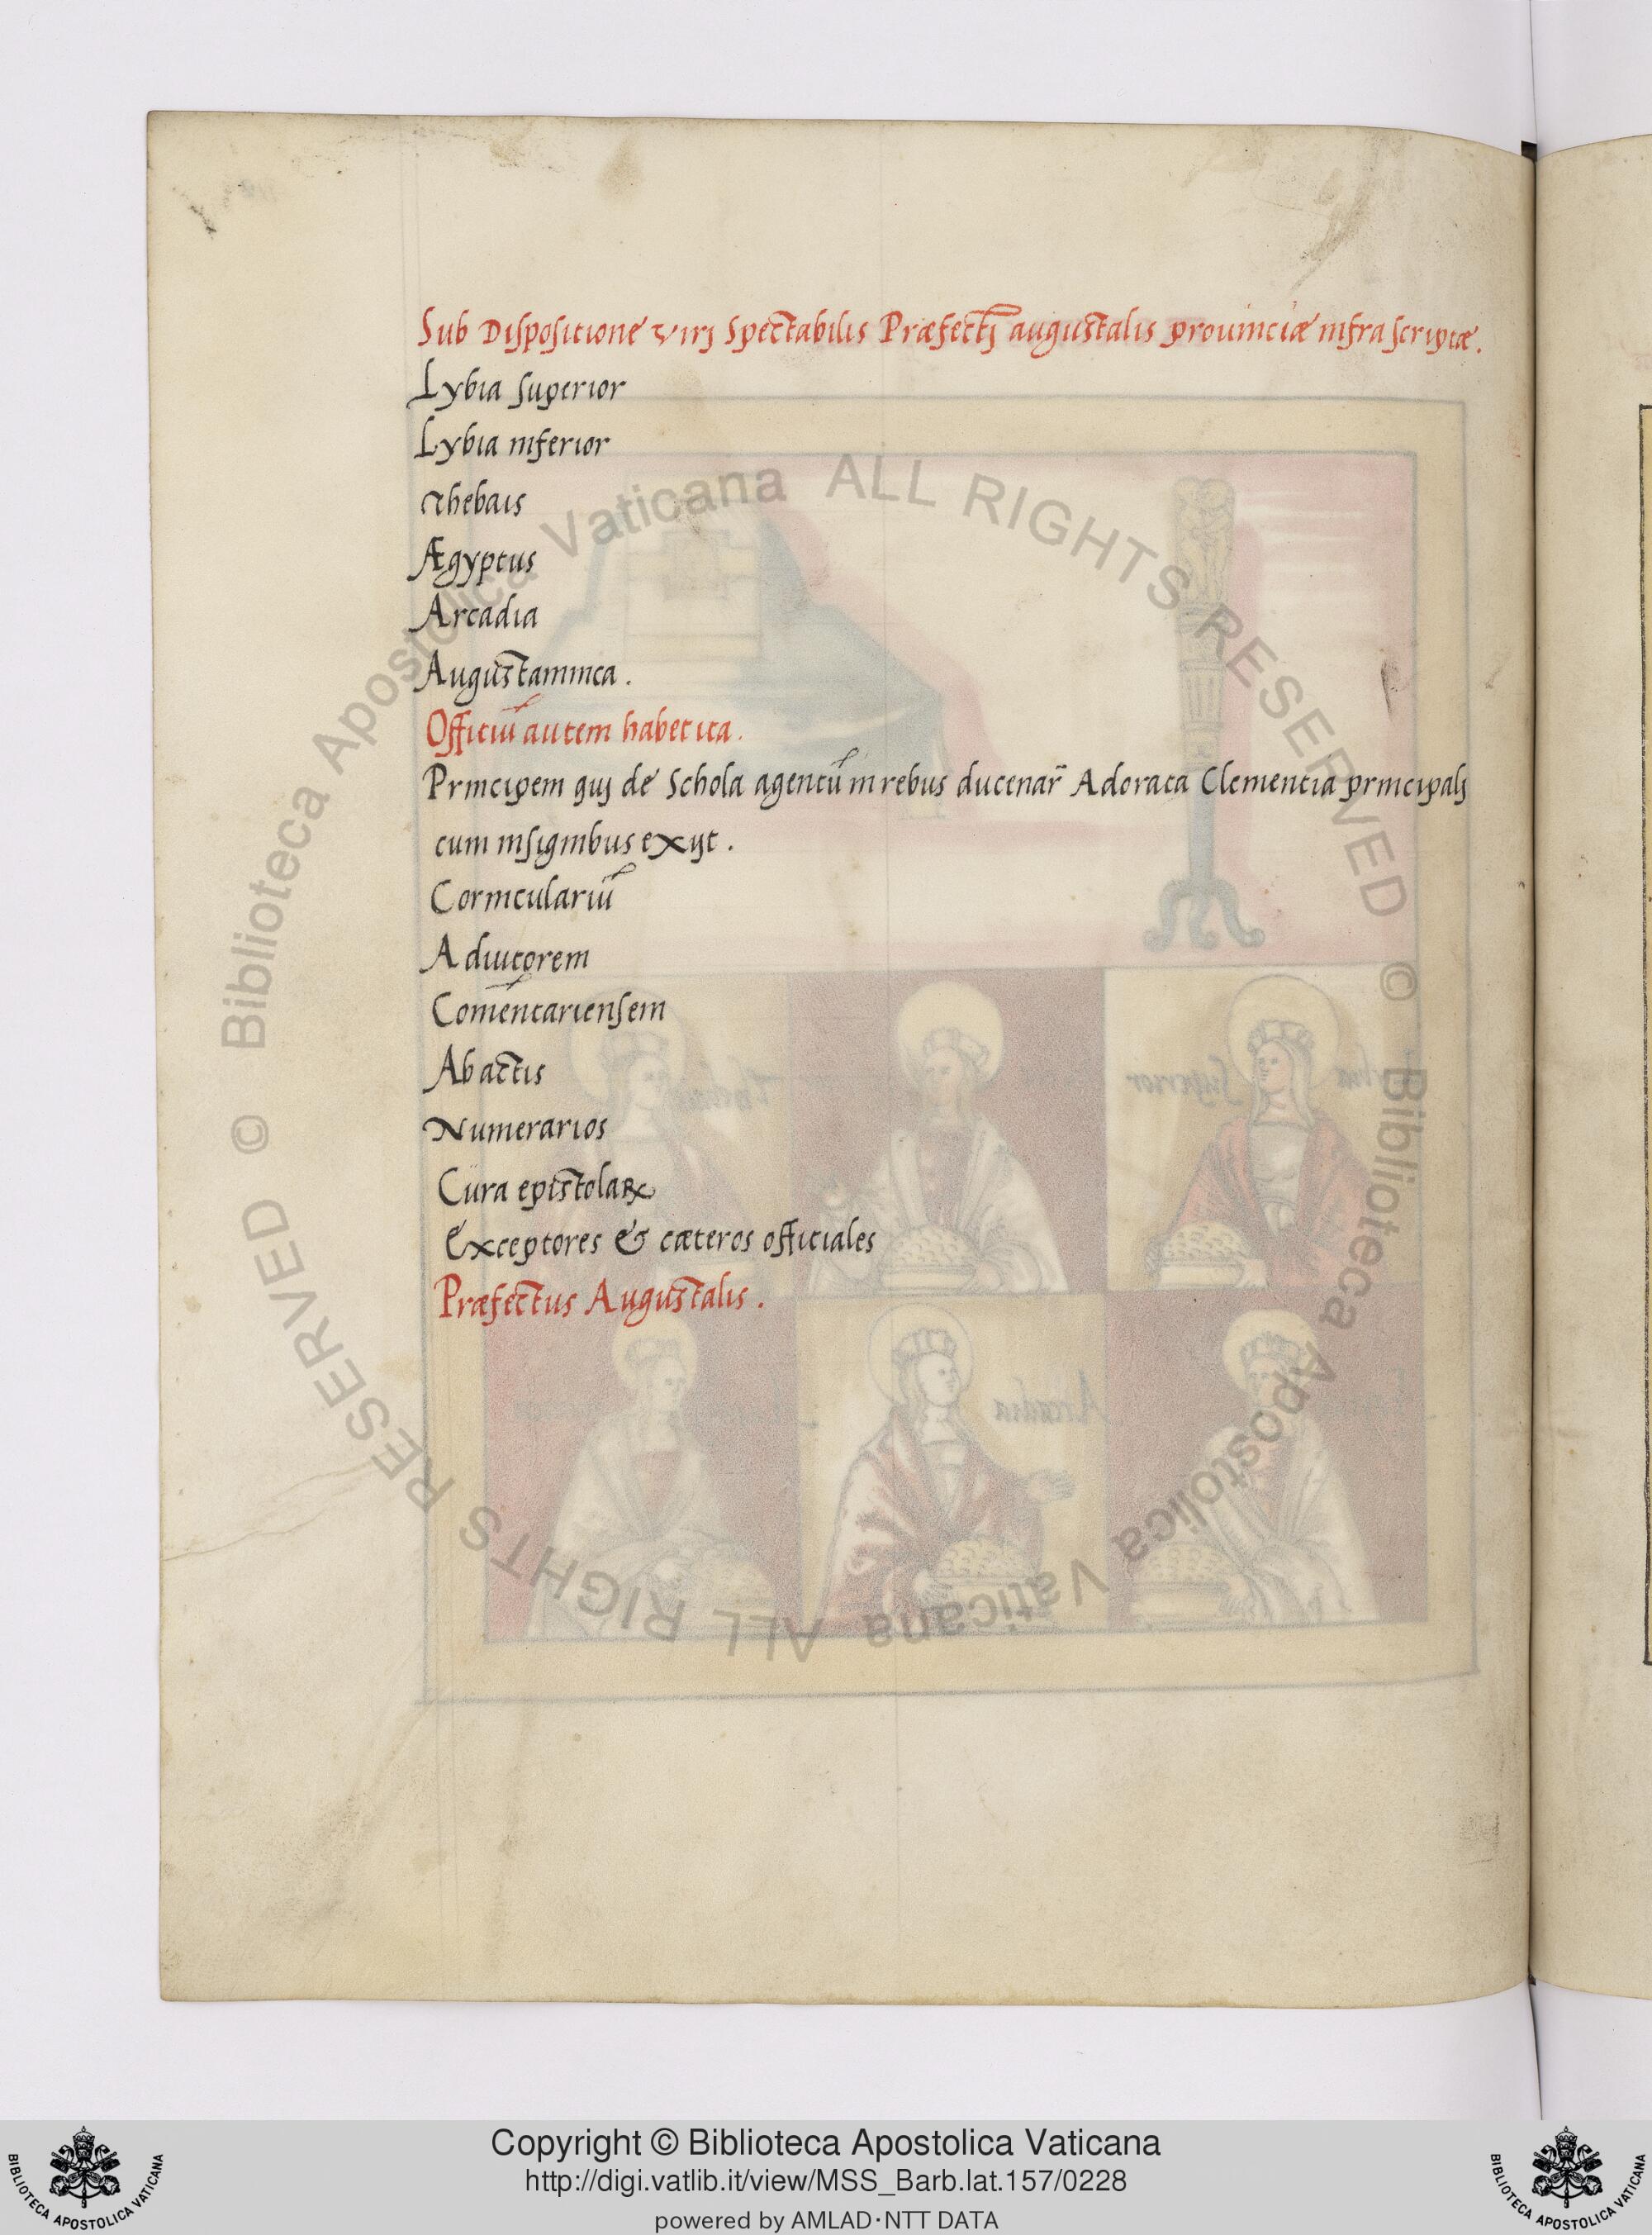 Sub Dispositione Viri Spectabilis Præfecti augustalis prouinciæ infra scriptæ.
Lybia superior
Lybia inferior
Thebais
Ægyptus
Arcadia
Augustamnica.
Officiū autem habet ita.
Principem qui de Schola agentū in rebus ducenar̄ Adorata Clementia principali
cum insignibus exijt.
Corniculariū
Adiutorem
Com̄entariensem
Ab actis
Numerarios
Cura epistolaꝝ
Exceptores & cæteros officiales
Præfectus Augustalis.
© Biblioteca Apostolica Vaticana ALL RIGHTS RESERVED © Biblioteca Apostolica Vaticana ALL RIGHTS RESERVED
Superior
Arcadia
Copyright © Biblioteca Apostolica Vaticana
http://digi.vatlib.it/view/MSS_Barb.lat.157/0228
powered by AMLAD·NTT DATA
BIBLIOTECA APOSTOLICA VATICANA
BIBLIOTECA APOSTOLICA VATICANA